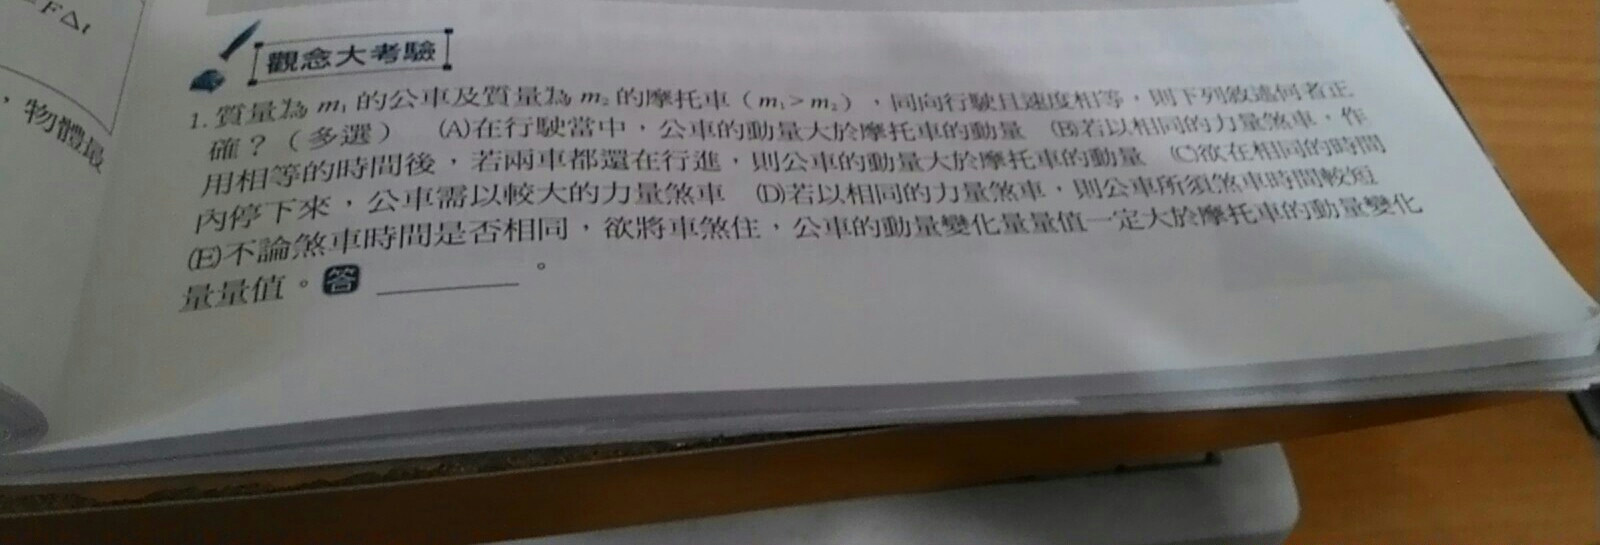 FΔt
，物體最
觀念大考驗
1. 質量為 m₁ 的公車及質量為 m₂ 的摩托車（m₁＞m₂），同向行駛且速度相等，則下列敘述何者正
確？（多選） (A)在行駛當中，公車的動量大於摩托車的動量 (B)若以相同的力量煞車，作
用相等的時間後，若兩車都還在行進，則公車的動量大於摩托車的動量 (C)欲在相同的時間
內停下來，公車需以較大的力量煞車 (D)若以相同的力量煞車，則公車所須煞車時間較短
(E)不論煞車時間是否相同，欲將車煞住，公車的動量變化量量值一定大於摩托車的動量變化
量量值。答 ________。